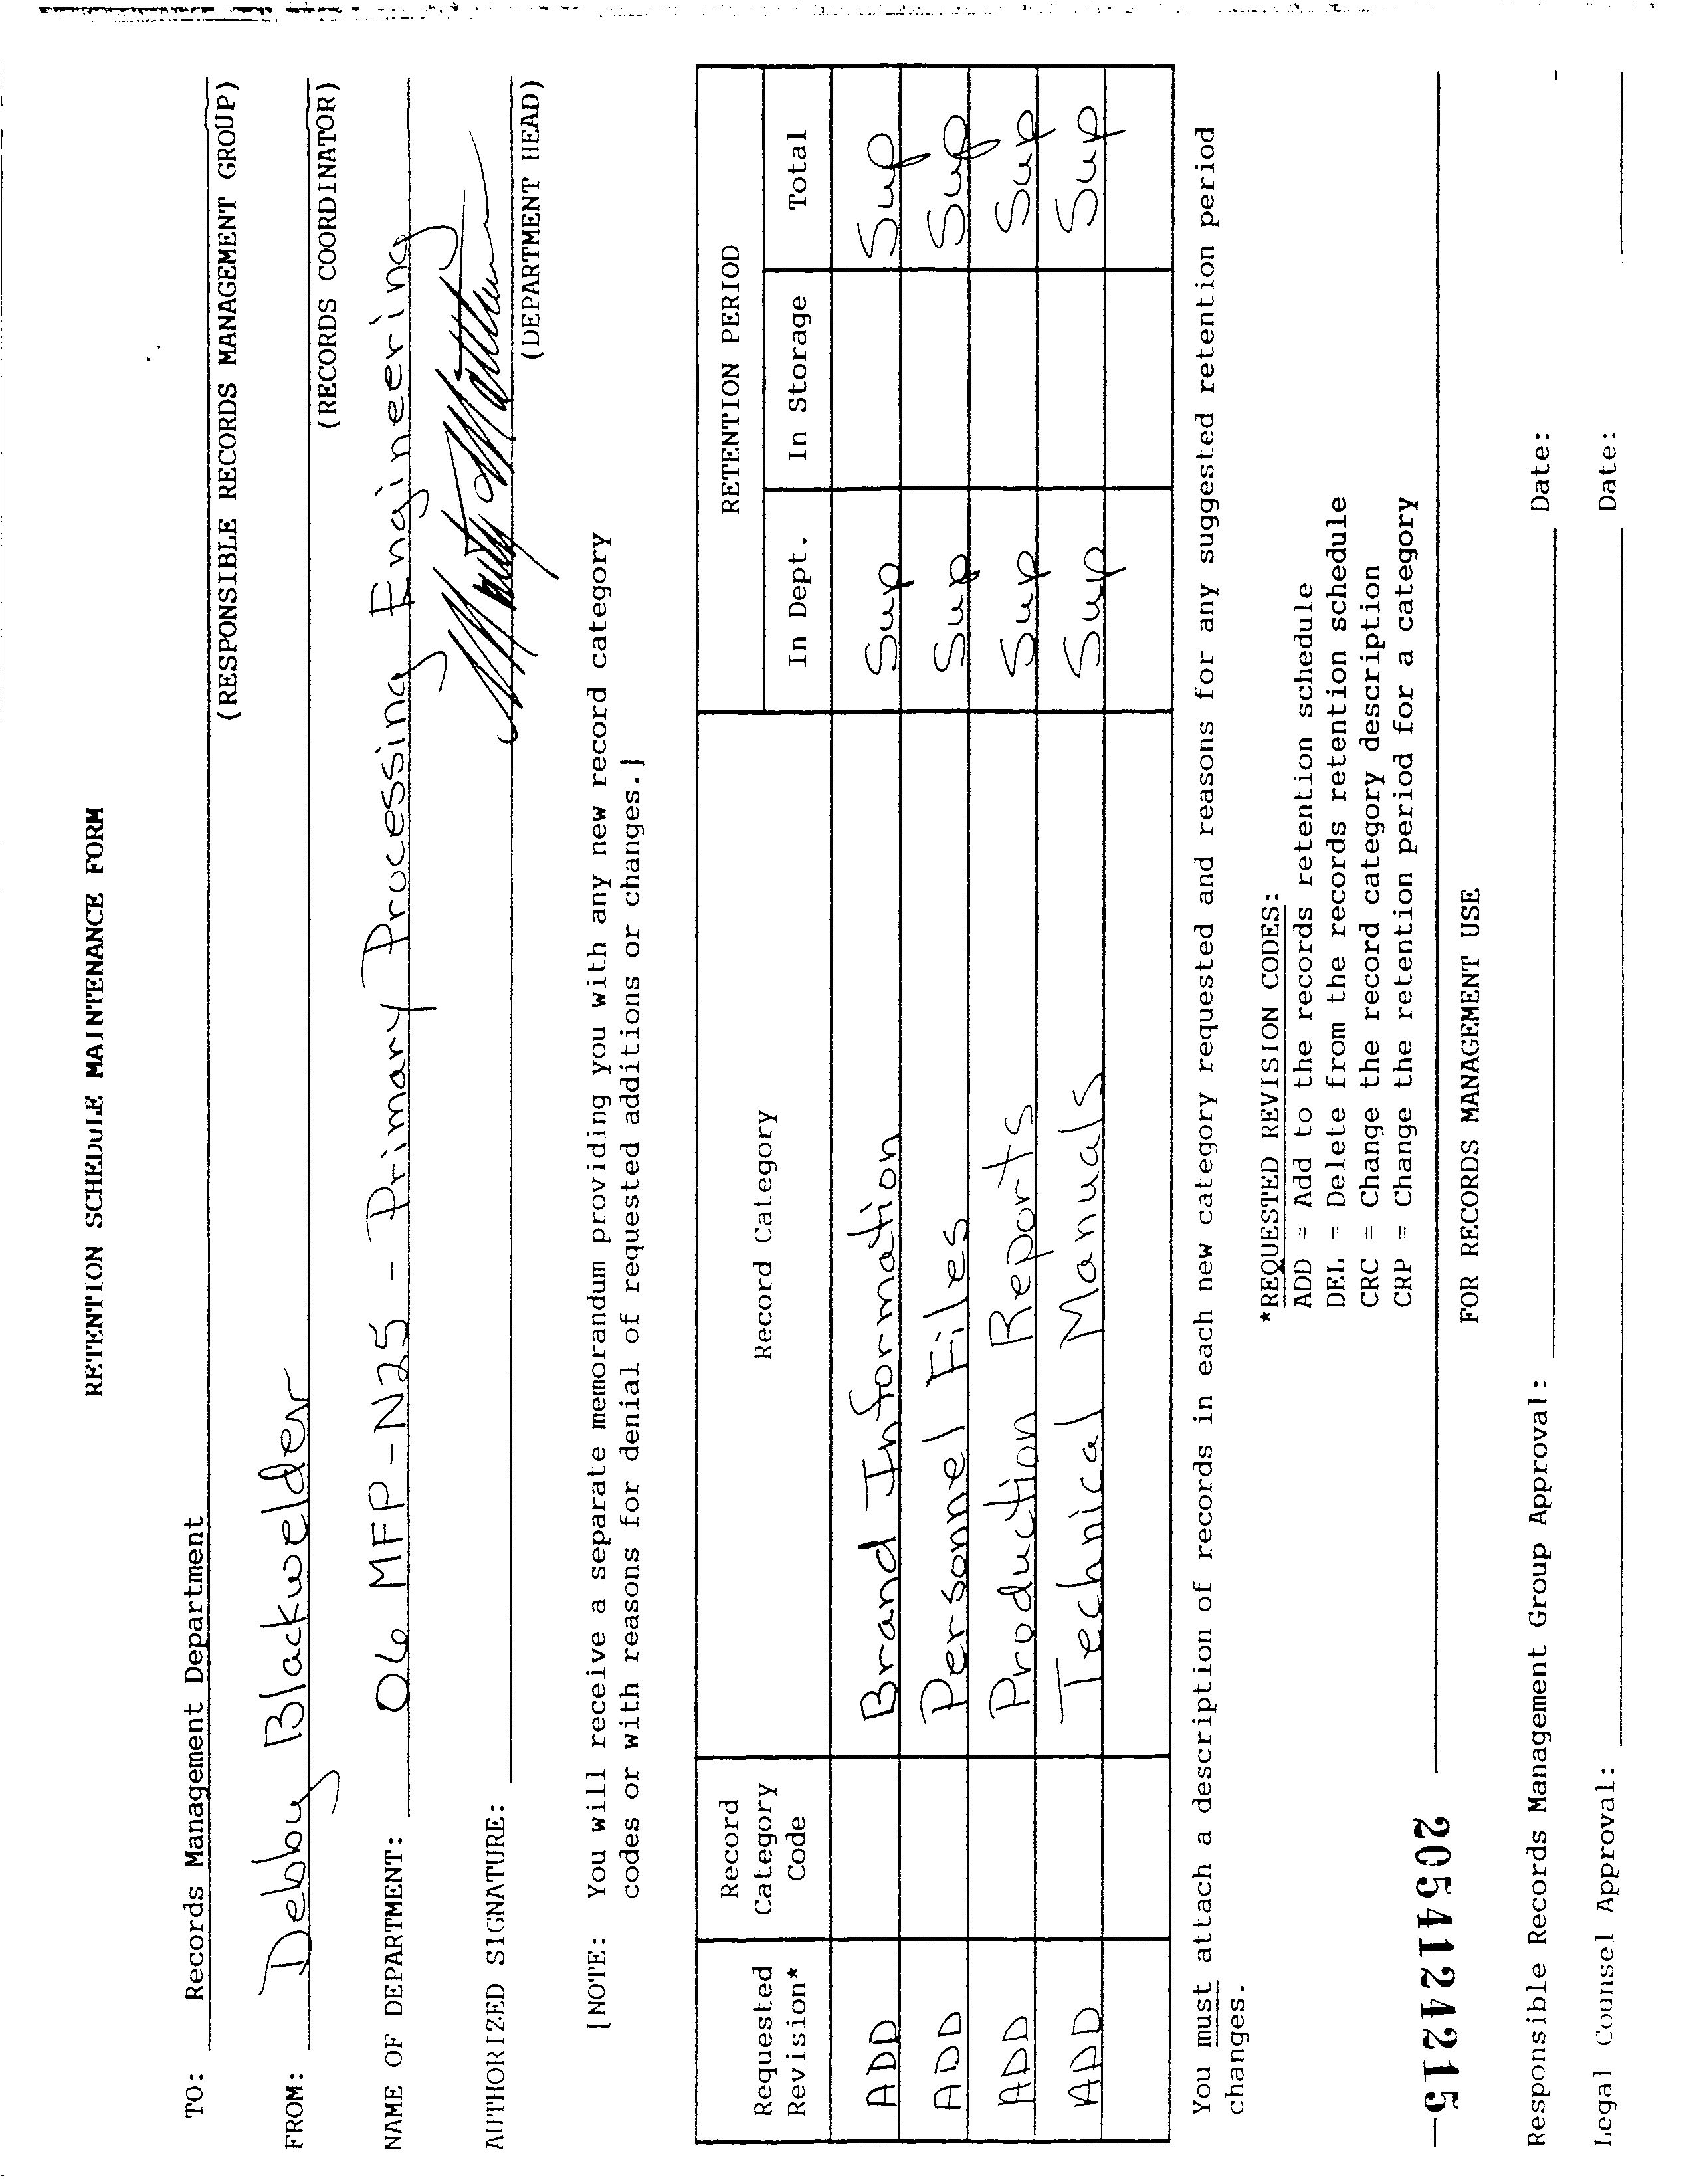 RETENTION SCHEDULE MAINTENANCE FORM
TO: Records Management Department
(RESPONSIBLE RECORDS MANAGEMENT GROUP)
FROM: Debby Blackwelder
(RECORDS COORDINATOR)
NAME OF DEPARTMENT: 06 MFP-N25 - Primary Processing Engineering
AUTHORIZED SIGNATURE:
(DEPARTMENT HEAD)
[NOTE: You will receive a separate memorandum providing you with any new record category
codes or with reasons for denial of requested additions or changes.]
RETENTION PERIOD
Requested Revision* Record Category Code Record Category In Dept. In Storage Total
ADD Brand Information Sup Sup
ADD Personnel Files Sup Sup
ADD Production Reports Sup Sup
ADD Technical Manuals Sup Sup
You must attach a description of records in each new category requested and reasons for any suggested retention period
changes.
*REQUESTED REVISION CODES:
ADD = Add to the records retention schedule
DEL = Delete from the records retention schedule
CRC = Change the record category description
CRP = Change the retention period for a category
2054124215
FOR RECORDS MANAGEMENT USE
Responsible Records Management Group Approval: Date:
Legal Counsel Approval: Date: